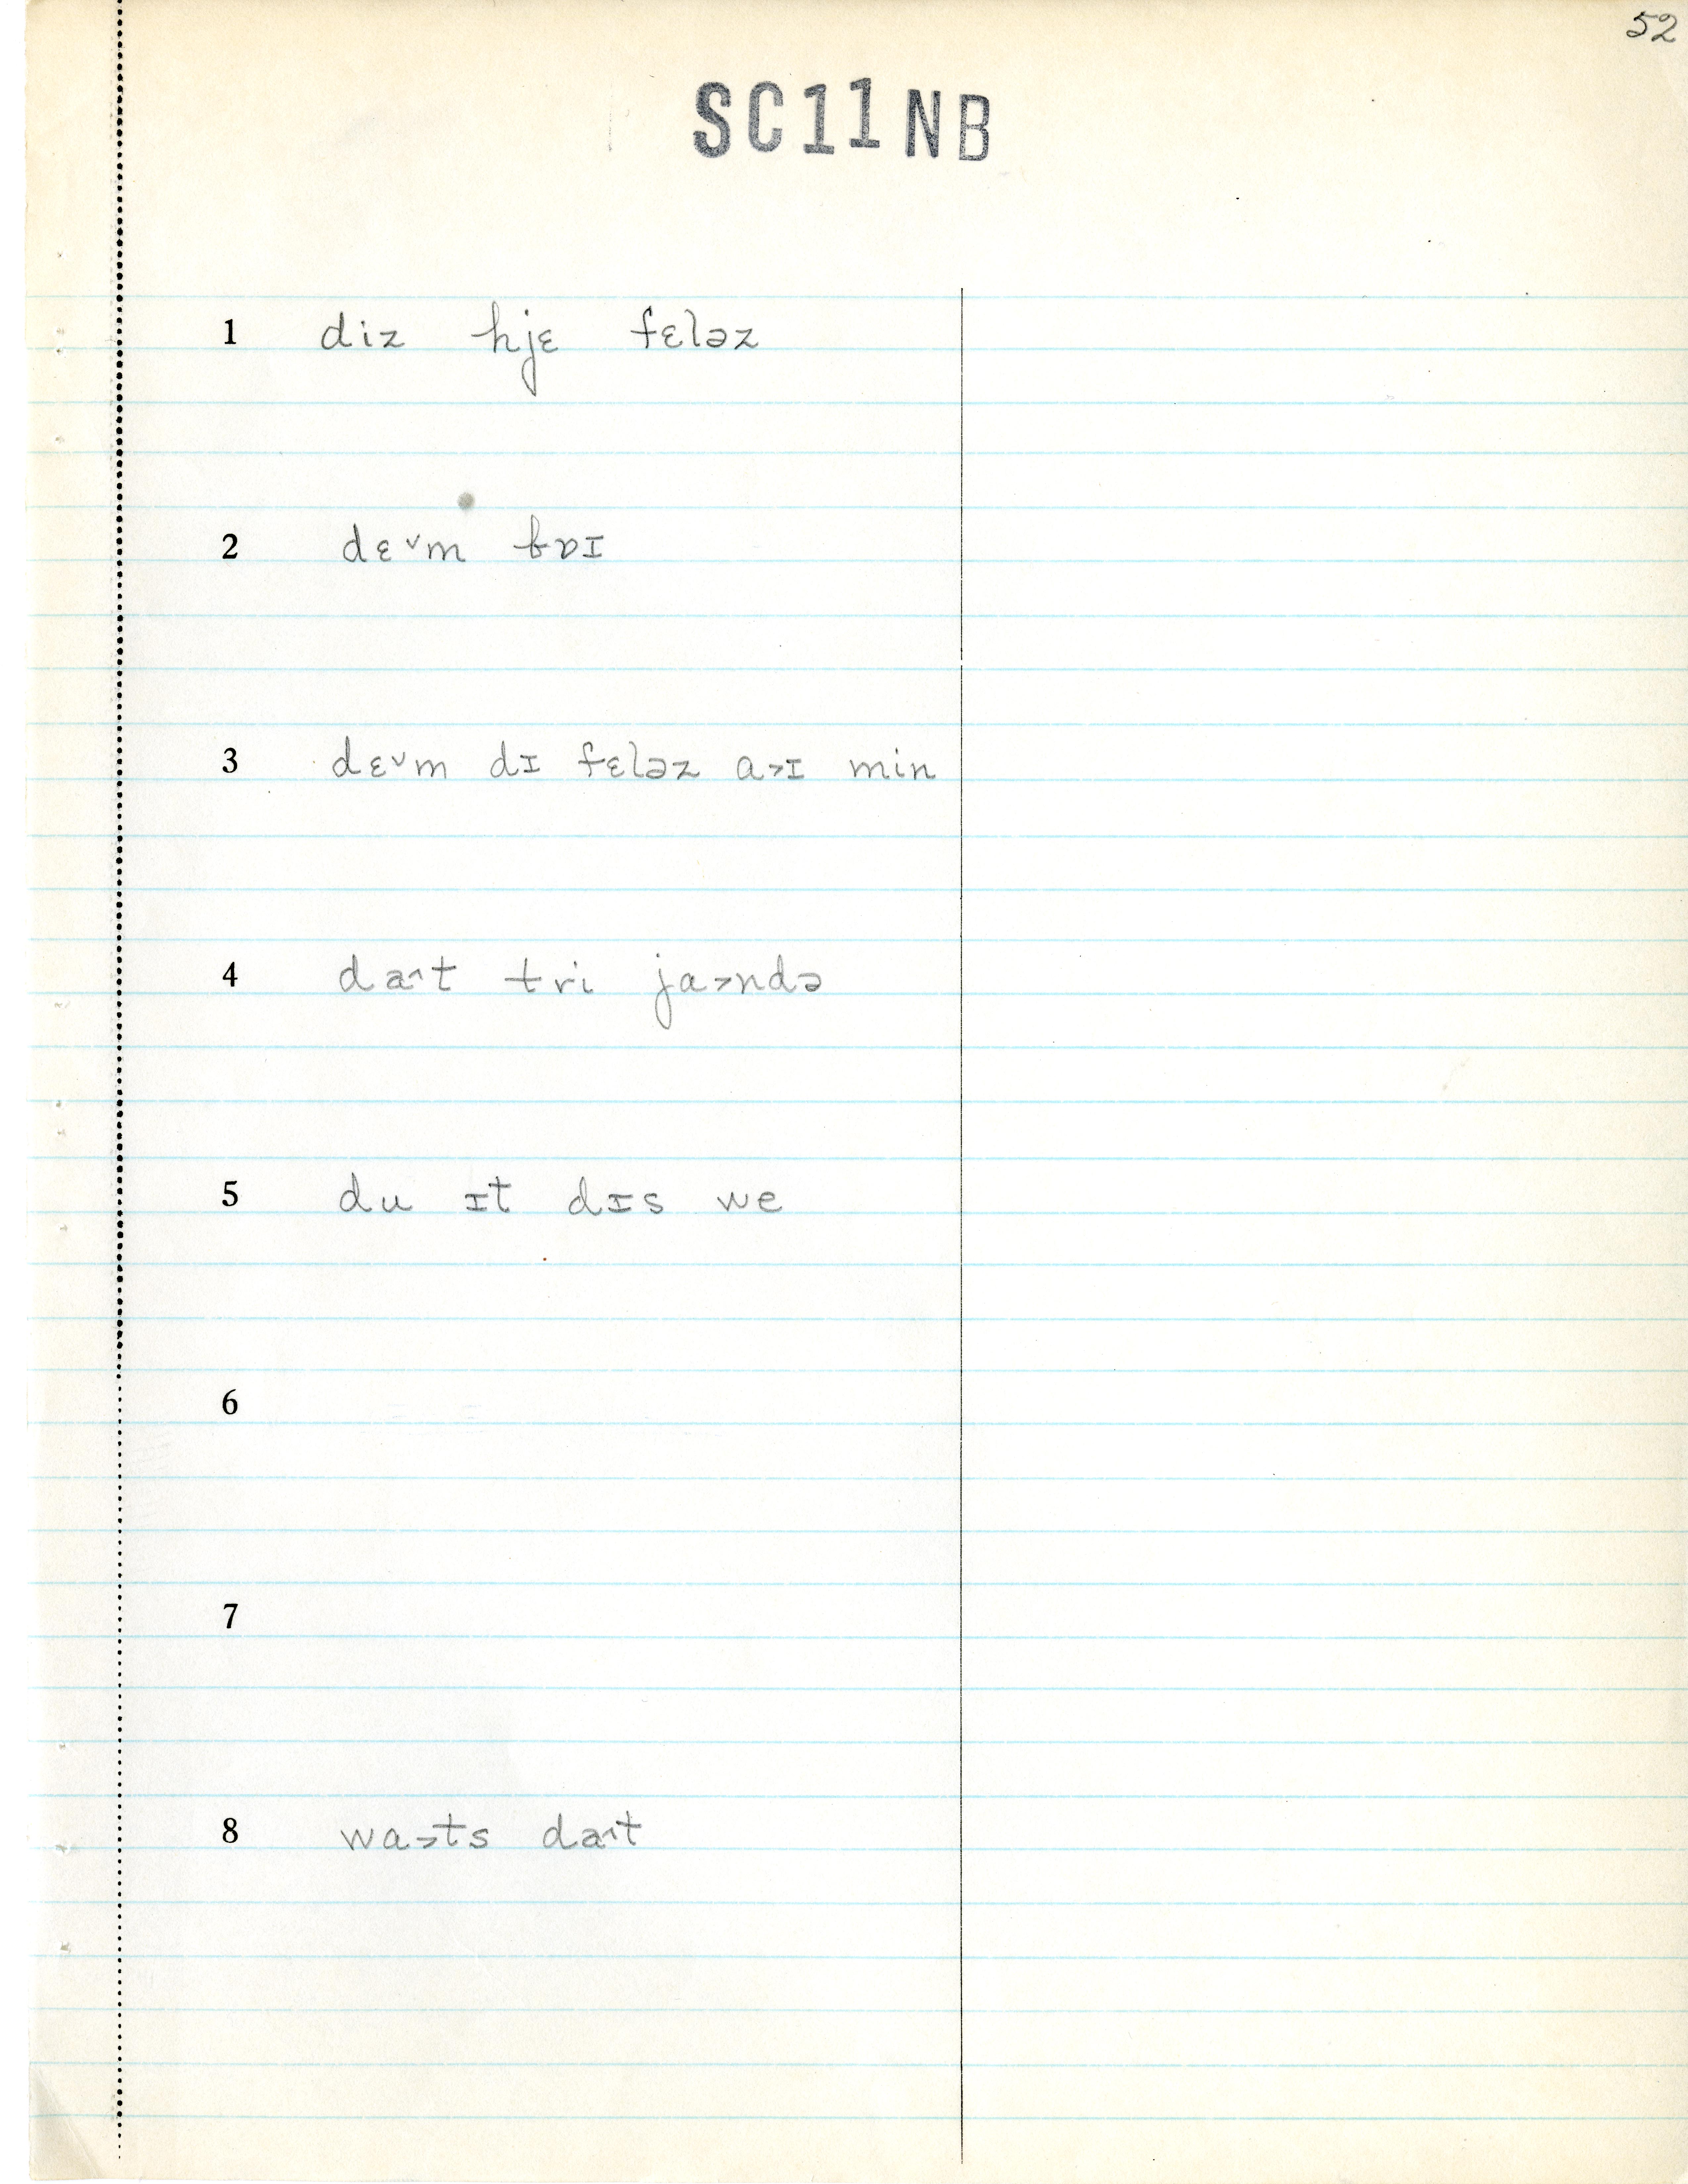 52
SC11NB
1 diz hjɛ fɛləz
2 dɛ˅m bɒɪ
3 dɛ˅m dɪ fɛləz a˃ɪ min
4 da˄t tri ja˃ndə
5 du ɪt dɪs we
6
7
8 wa˃ts da˄t